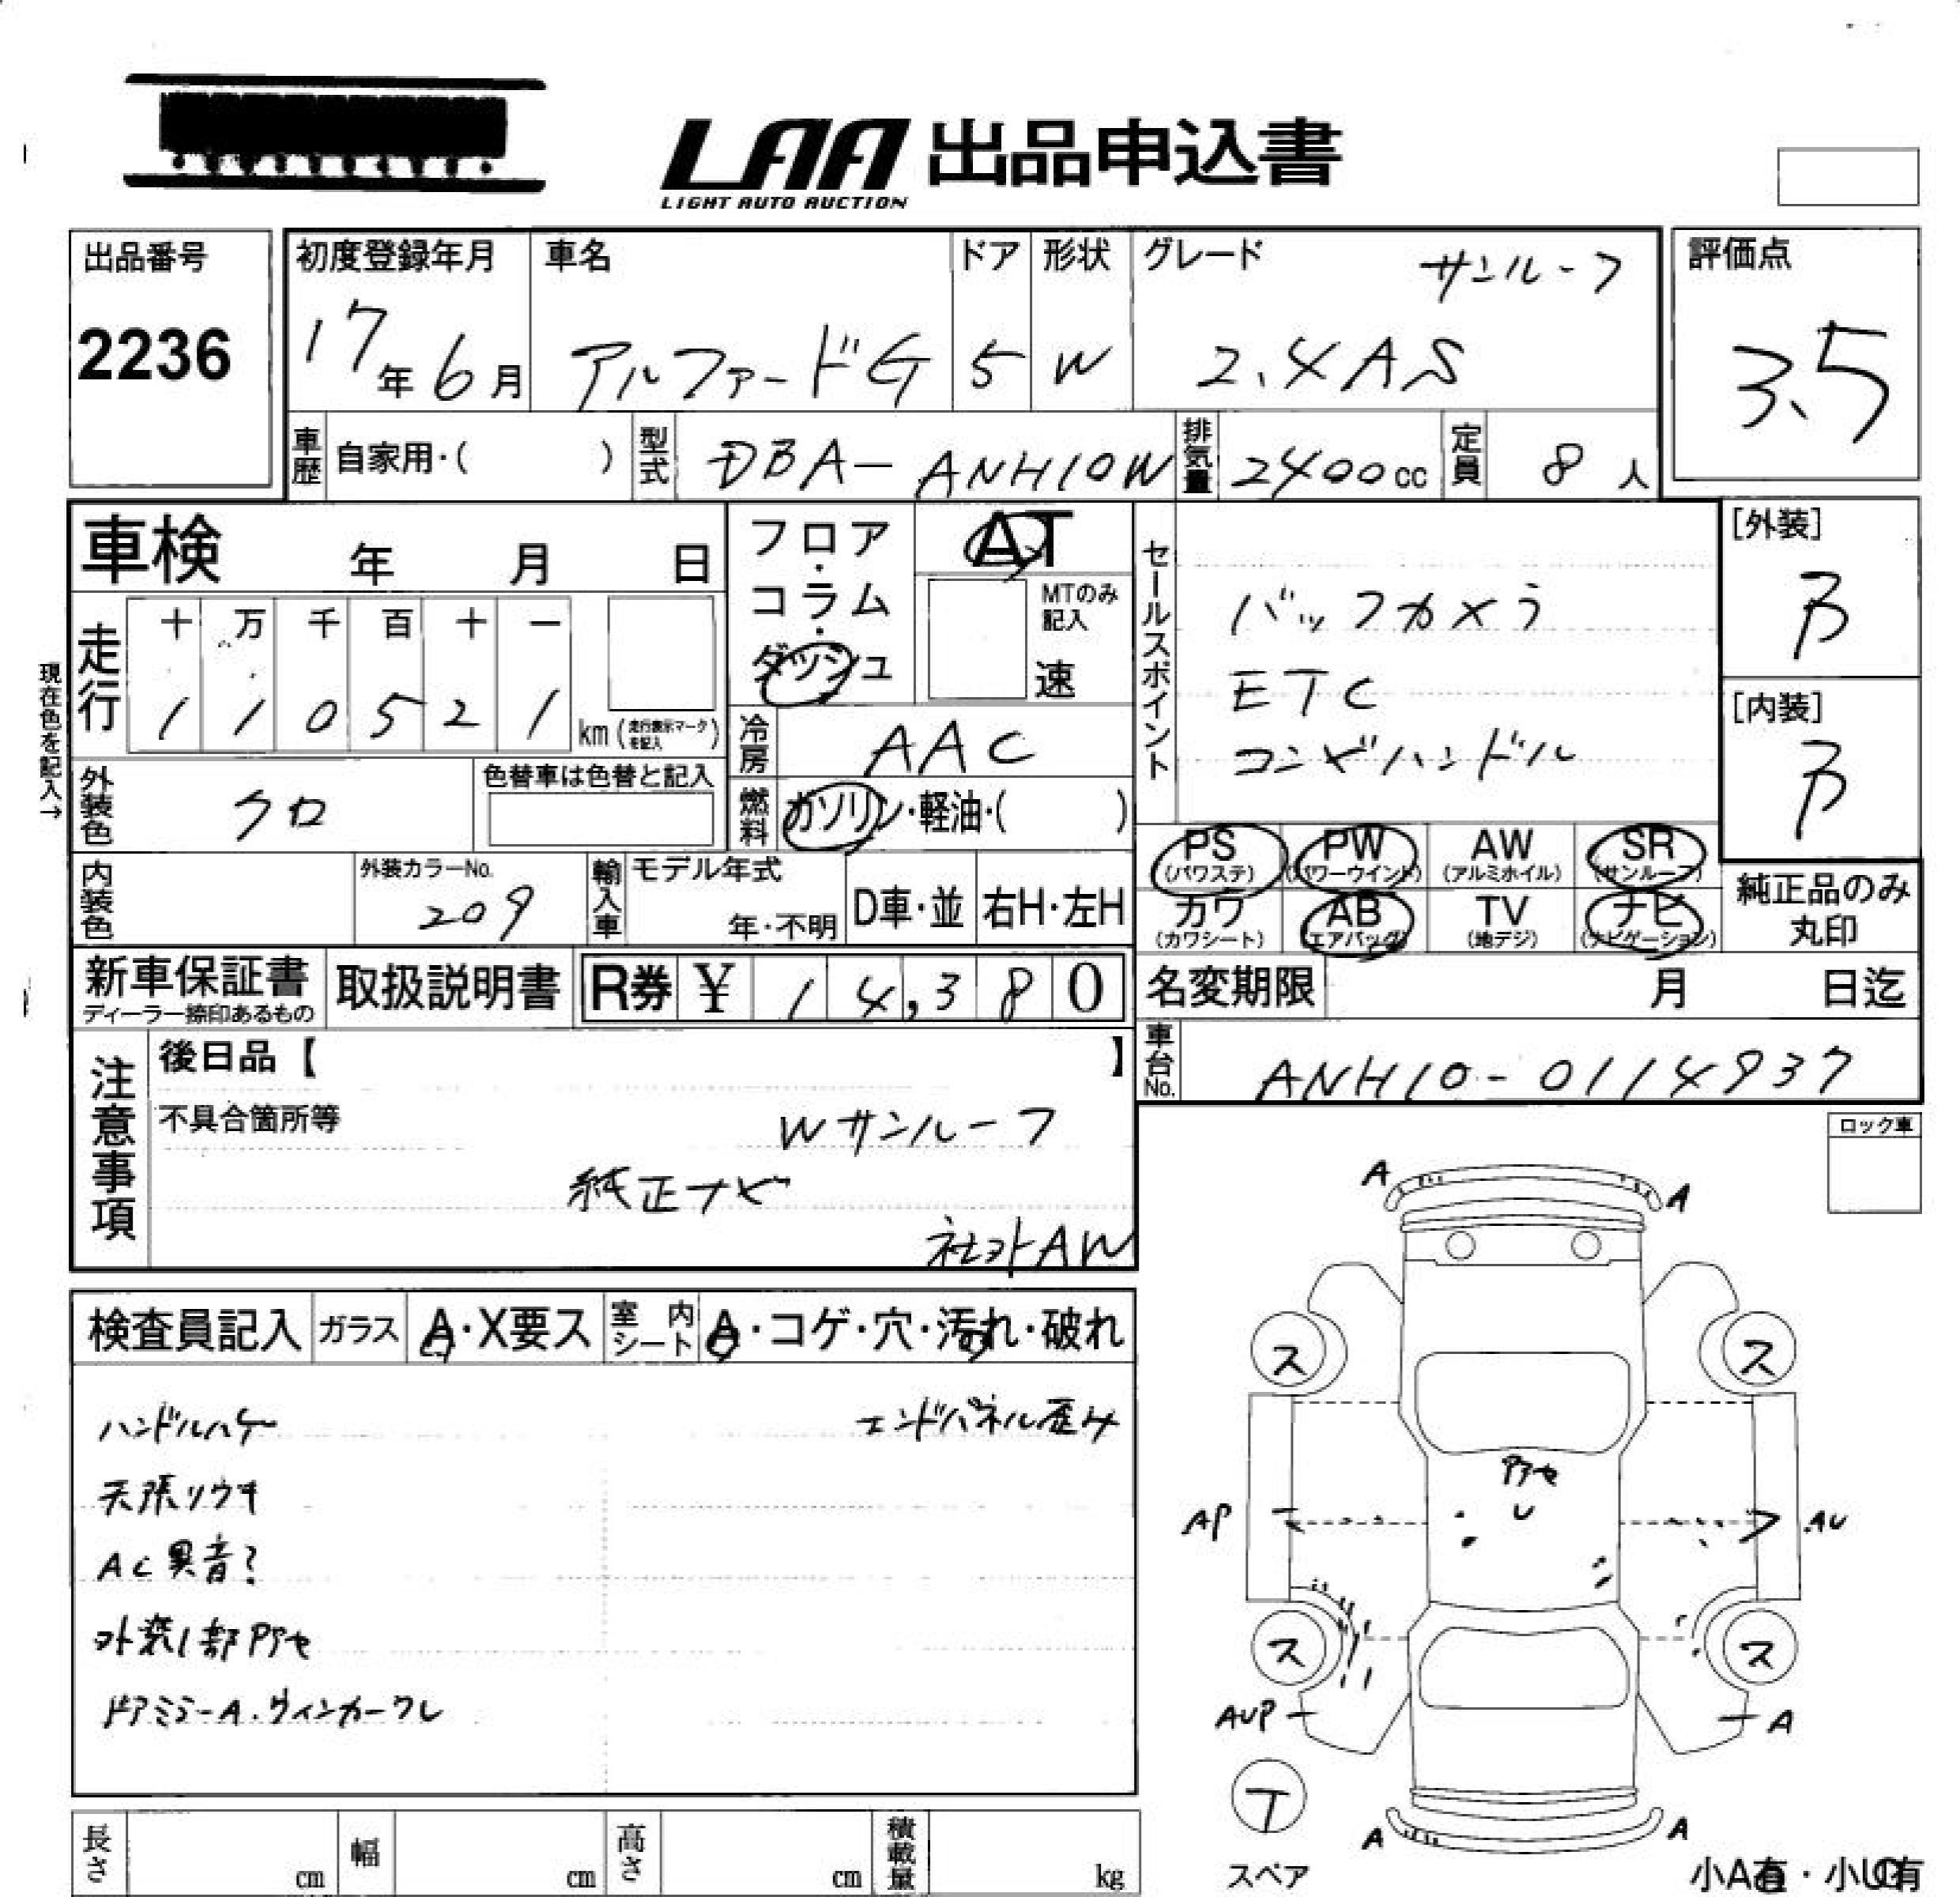 LAA 出品申込書
LIGHT AUTO AUCTION
出品番号
2236
初度登録年月
17年6月
車名
アルファードG
ドア
5
形状
W
グレード
サンルーフ
2.4AS
評価点
3.5
車歴 自家用・( )
型式 DBA-ANH10W
排気量 2400cc
定員 8人
車検 年 月 日
フロア・コラム・ダッシュ
AT
MTのみ記入
速
現在色を記入→
走行
十 万 千 百 十 一
1 1 0 5 2 1 km(走行表示マークを記入)
冷房 AAC
燃料 ガソリン・軽油・( )
外装色 クロ
色替車は色替と記入
内装色
外装カラーNo.
209
輸入車
モデル年式
年・不明
D車・並
右H・左H
セールスポイント
バックカメラ
ETC
コンビハンドル
[外装]
B
[内装]
B
PS (パワステ)
PW (パワーウインド)
AW (アルミホイル)
SR (サンルーフ)
カワ (カワシート)
AB (エアバッグ)
TV (地デジ)
ナビ (ナビゲーション)
純正品のみ丸印
新車保証書
ディーラー捺印あるもの
取扱説明書
R券 ¥ 14,380
名変期限 月 日迄
車台No. ANH10-0114937
注意事項
後日品【 】
不具合箇所等
Wサンルーフ
純正ナビ
社外AW
ロック車
検査員記入
ガラス A・X要ス
室内シート A・コゲ・穴・汚れ・破れ
ハンドルハゲ
エンドパネル歪み
天張リウキ
AC異音?
外装1部Pアセ
ドアミラーA.ウィンカーワレ
A
A
ス
ス
Pアセ
U
AP
AU
ス
ス
AUP
A
T
スペア
A
A
小A有・小U有
長さ cm
幅 cm
高さ cm
積載量 kg